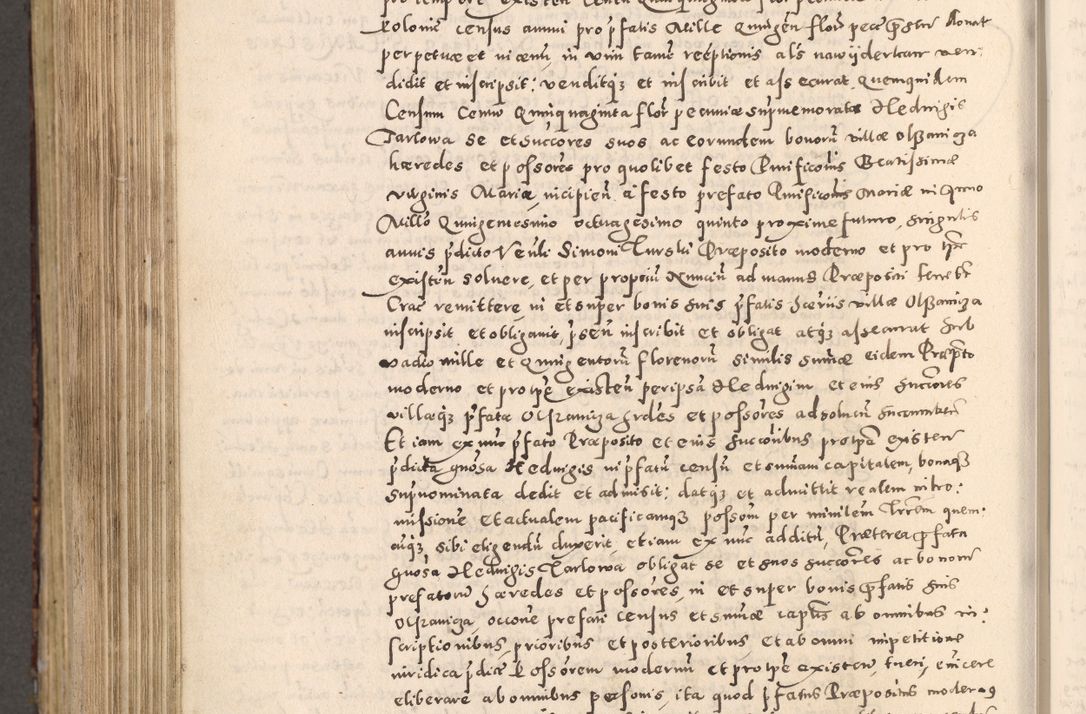 Polonie census annui pro p̄fatis Mille Quingen̄ flor̄ pecc̄ donat
perpetuae et in unū tamē reēptionis als nawÿderkau ven¬
didit et inscripsit: venditq₃ et inscribit et assecurat. Quemquidem
Censum Centū Quinquaginta flor̄ pecuniæ sup̄memoratæ Hedwigis
Tarlowa se et succ̄ores suos ac eorundem bonorū villæ Olszaniga
hæredes et possōres pro quolibet festo Purificōnis Beatissimæ
virginis Mariæ incipien̄ a festo prefato Purificōnis Mariæ in Anno
Millō Quingentesimo octuagesimo quinto proxime futuro, singulis
annis p̄dicto Ven̄li Simoni Turski Præposito moderno et pro tp̄e
existen̄ solvere, et per propriū Nunciū ad manus Præpositi
Crac̄ remittere, in et super bonis suis p̄fatis hæriis villæ Olszaniga
inscripsit et obligavit, p̄sen̄ inscribit et obligat atq₃ assecurat sub
vadio mille et Quingentorū florenorū similis summæ eidem Præpto
moderno et pro tpē existen̄ per ipsā Hedwigim et eius succ̄ores
villæq₃ p̄fatæ Olszaniga hrdēs et possōres ad solven̄ succumben̄
Et iam ex nūc p̄fato Præposito et eius succ̄oribus pro tpē existen̄
p̄dicta gnōsa Hedwigis in p̄fatū censū et summam capitalem, bonaq₃
sup̄nominata dedit et admisit: datq₃ et admittit realem intro:
missionē et actualem pacificamq₃ possōm per ministēlem trr̄em quem:
cūq₃ sibi eligendū duxerit etiam ex nūc additū, Præterea p̄fata
gnōsa Hedwigis Tarlowa obligat se et suos succ̄ores ac bonorū
prefatorū hæredes et possōres, in et super bonis p̄fatis suis
Olszaniga occōne prefati census et summæ captlīs ab omnibus in:
scriptionibus prioribus et posterioribus et ab omni impetitione
iuridica p̄dictæ Possōrem modernū et pro tpē existen̄, tueri, evincere
eliberare ab omnibus personis, ita quod p̄fatus Præpositus modernꝰ